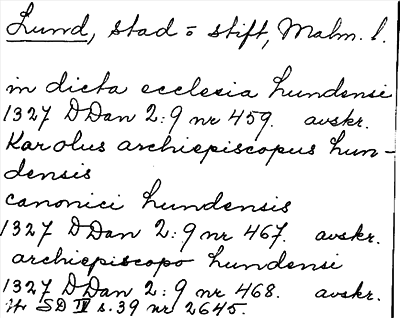 Lund, stad = stift, Malm. l.
in dicta ecclesia Lundensi
1327 DDan 2:9 nr 459. avskr.
Karolus archiepiscopus Lun-
densis
canonici Lundensis
1327 DDan 2:9 nr 467. avskr.
archiepiscopo Lundensi
1327 DDan 2:9 nr 468. avskr.
SD IV s. 39 nr 2645.